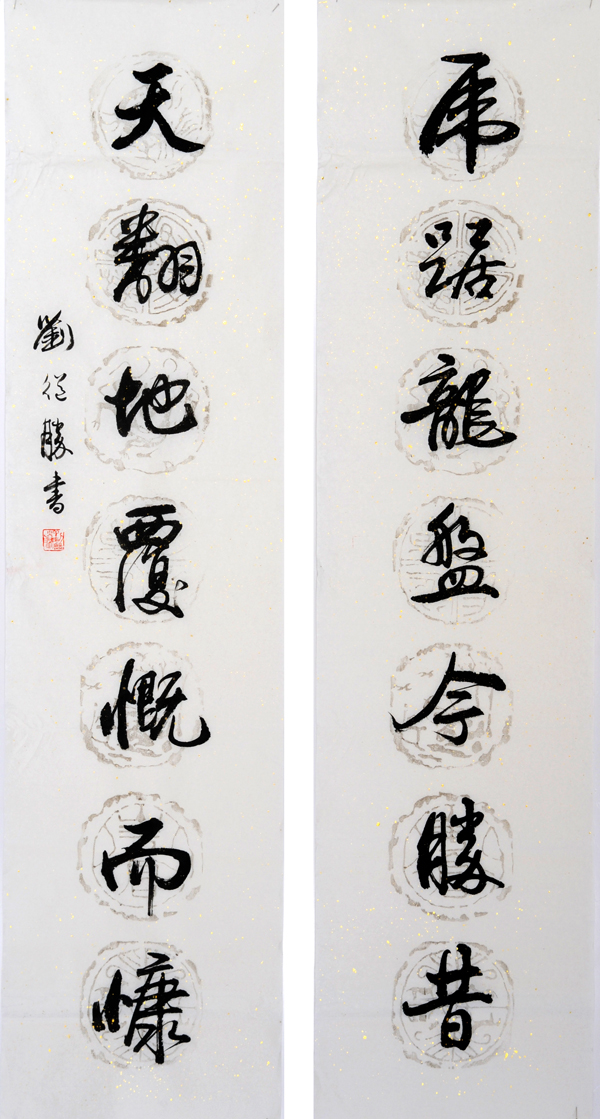 虎踞龍盤今勝昔
天翻地覆慨而慷
劉從勝書